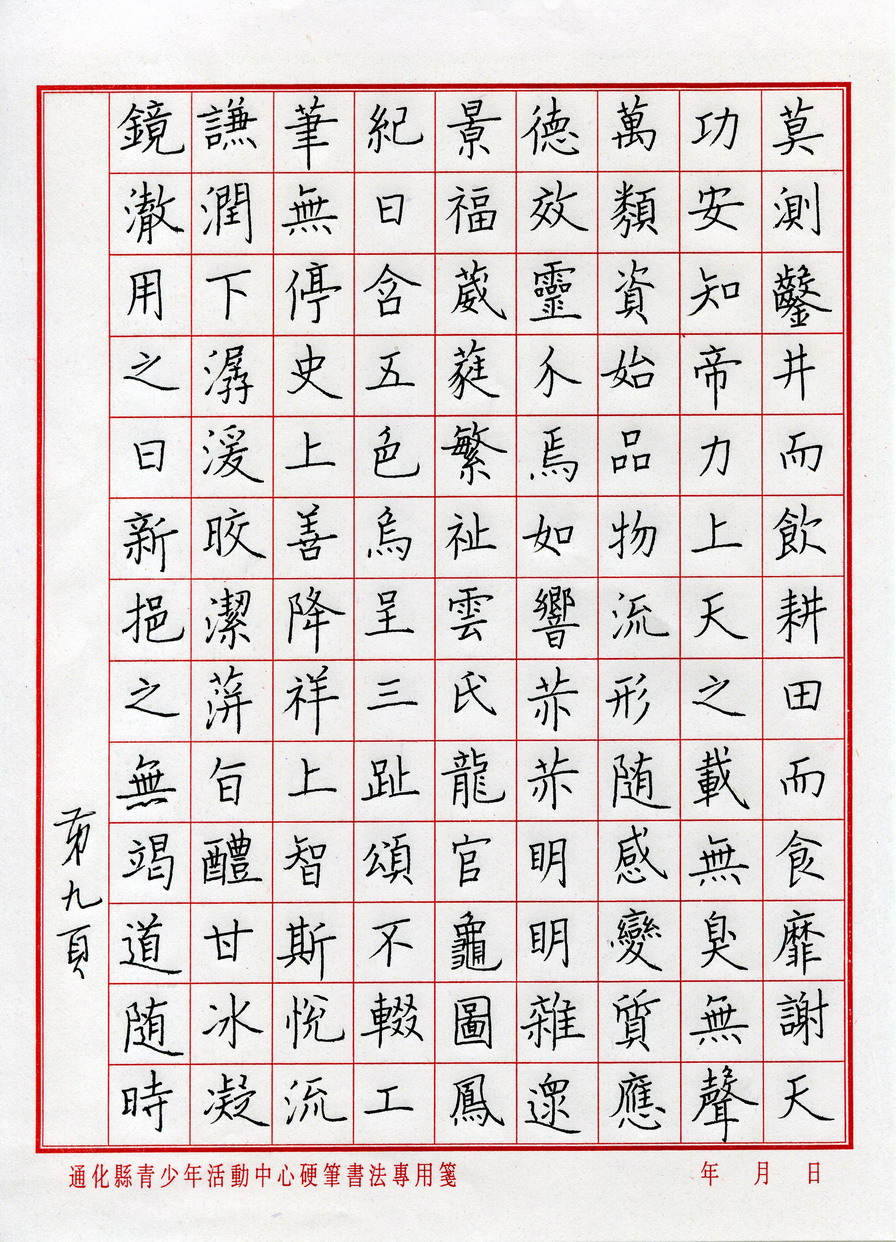 莫測鑿井而飲耕田而食靡謝天
功安知帝力上天之載無臭無聲
萬類資始品物流形随感變質應
德效靈介焉如響赫赫明明雜遝
景福葳蕤繁祉雲氏龍官龜圖鳳
紀日含五色烏呈三趾頌不輟工
筆無停史上善降祥上智斯悦流
謙潤下潺湲皎潔蓱旨醴甘冰凝
鏡澈用之日新挹之無竭道随時
第九頁
通化縣青少年活動中心硬筆書法專用箋
年 月 日